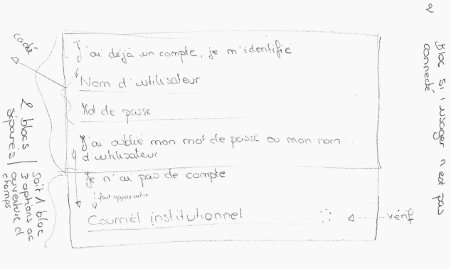 2
Bloc si l'usager n'est pas
connecté
cadré
J'ai déjà un compte, je m'identifie
Nom d'utilisateur
Mot de passe
J'ai oublié mon mot de passe ou mon nom
d'utilisateur
Je n'ai pas de compte
fait apparaitre
Courriel institutionnel
vérif
2 blocs
séparés /
Soit 1 bloc
3 options ac
ouverture d
champs